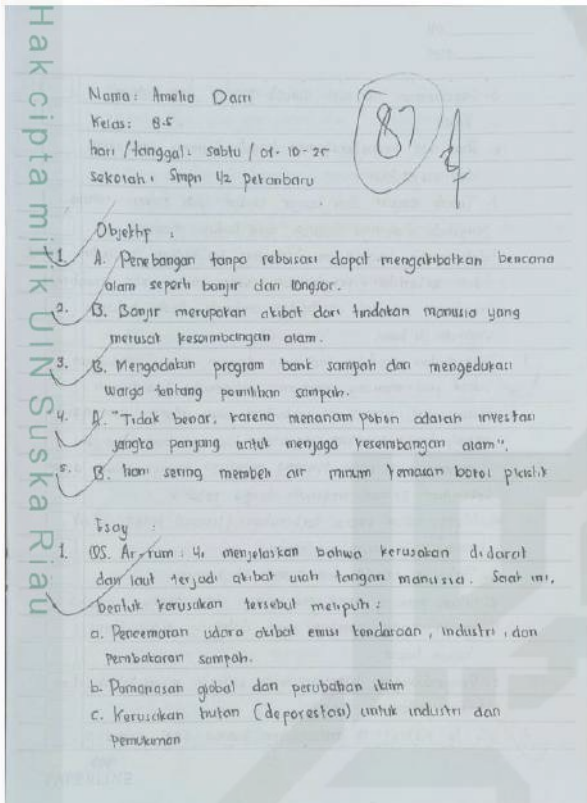 Hak cipta milik UIN Suska Riau
Nama: Amelia Darri
Kelas: 8-5
hari / tanggal: sabtu / 01-10-25
sekolah: Smpn 42 Pekanbaru
87
Objektip :
1. A. Penebangan tanpa reboisasi dapat mengakibatkan bencana
alam seperti banjir dan longsor.
2. B. Banjir merupakan akibat dari tindakan manusia yang
merusak keseimbangan alam.
3. B. Mengadakan program bank sampah dan mengedukasi
warga tentang pemilihan sampah.
4. A. "Tidak benar, karena menanam pohon adalah investasi
jangka panjang untuk menjaga keseimbangan alam".
5. B. hani sering membeli air minum kemasan botol plastik
Esay :
1. QS. Ar-rum : 41 menjelaskan bahwa kerusakan didarat
dan laut terjadi akibat ulah tangan manusia. Saat ini,
bentuk kerusakan tersebut meliputi :
a. Pencemaran udara akibat emisi kendaraan, industri, dan
Pembakaran sampah.
b. Pamanasan global dan perubahan iklim
c. Kerusakan hutan (deporestasi) untuk industri dan
Pemukiman